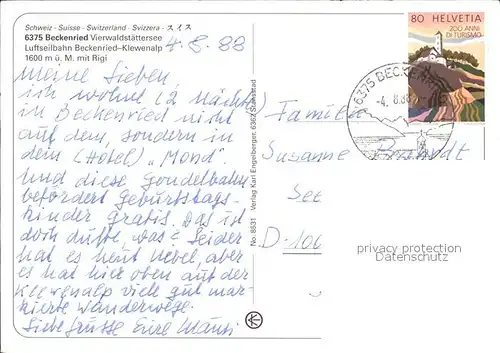 Schweiz - Suisse - Switzerland - Svizzera -
6375 Beckenried Vierwaldstättersee
Luftseilbahn Beckenried–Klewenalp
1600 m ü. M. mit Rigi
4.8.88
Meine Lieben
ich wohne (2 Nächte)
in Beckenried nicht
auf dem, sondern in
dem (Hotel) „Mond".
Und diese Gondelbahn
befördert Geburtstags-
kinder gratis. Das ist
doch dufte, was? Leider
hat es heut Nebel, aber
es hat hier oben auf der
Klewenalp viele gut mar-
kierte Wanderwege.
Liebe Grüsse Eure
No. 8531 Verlag Karl Engelberger, 6362 Stansstad
80 HELVETIA
200 ANNI
DI TURISMO
6375 BECKENRIED
-4.8.88
Familie
Susanne
See
D-100
privacy protection
Datenschutz